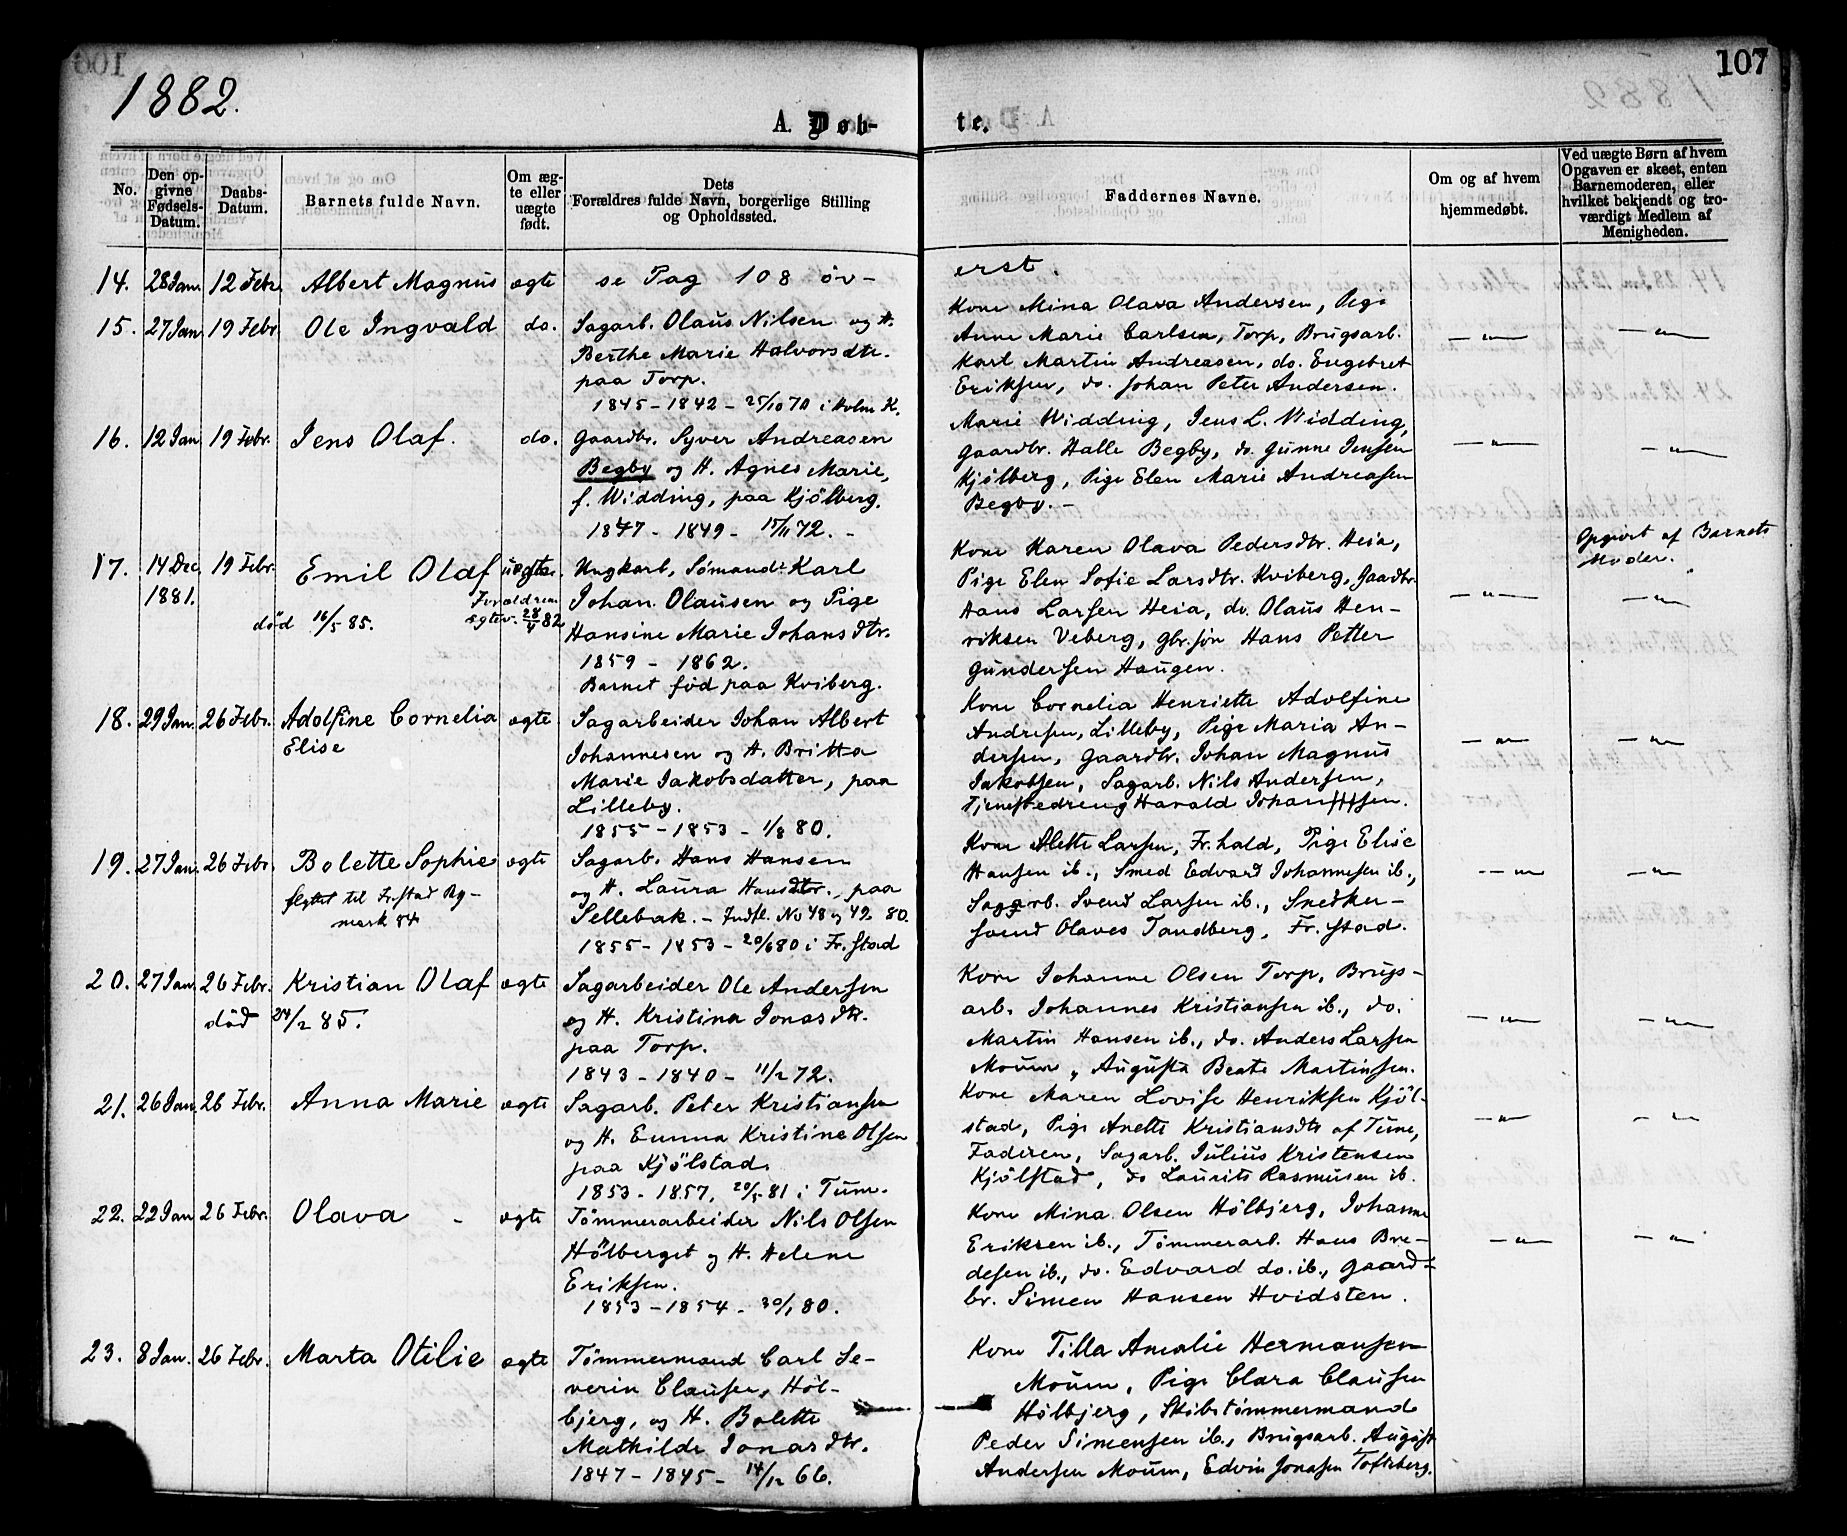 106
1882.
107
A. Døb-
te.
No.
Den op-
givne
Fødsels-
Datum.
Daabs-
Datum.
Barnets fulde Navn.
Om æg-
te eller
uægte
født.
Dets
Forældres fulde Navn, borgerlige Stilling
og Opholdssted.
Faddernes Navne.
Om og af hvem
hjemmedøbt.
Ved uægte Børn af hvem
Opgaven er skeet, enten
Barnemoderen, eller
hvilket bekjendt og tro-
værdigt Medlem af
Menigheden.
14. 28 Jan. 12 Febr. Albert Magnus ægte se Pag 108 öv-
erst.
15. 27 Jan. 19 Febr. Ole Ingvald do. Sagarb. Olaus Nilsen og H.
Berthe Marie Halvorsdtr.
paa Torp.
1845 - 1842 - 25/10 70 i Holm K.
Kone Mina Olava Andersen, Pige
Anne Marie Carlsen, Torp, Brugsarb.
Karl Martin Andreasen, do. Engebret
Eriksen, do. Johan Peter Andersen.
— " —
— " —
16. 12 Jan 19 Febr. Jens Olaf. do. Gaardbr. Syver Andreasen
Begby og H. Agnes Marie,
f. Widding, paa Kjölberg.
1847 - 1849 - 15/11 72. -
Marie Widding, Jens L. Widding,
Gaardbr. Halle Begby, do. Gunne Jensen
Kjölberg, Pige Elen Marie Andreasen
Begby. -
— " —
— " —
17. 14 Dec. 1881. 19 Febr. Emil Olaf uægte.
Forældrene
ægtev. 28/4 82
död 16/5 85.
Ungkarl, Sömand Karl
Johan Olausen og Pige
Hansine Marie Johansdtr.
1859 - 1862.
Barnet fød paa Kviberg.
Kone Karen Olava Pedersdtr. Heia,
Pige Elen Sofie Larsdtr. Kviberg, Gaardbr.
Hans Larsen Heia, do. Olaus Hen-
riksen Veberg, Gbr.sön Hans Petter
Gundersen Haugen.
— " —
Opgivet af Barnets
Moder.
— " —
18. 29 Jan. 26 Febr. Adolfine Cornelia ægte
Elise
Sagarbeider Johan Albert
Johannesen og H. Britta
Marie Jakobsdatter, paa
Lilleby.
1855 - 1853 - 1/8 80.
Kone Cornelia Henriette Adolfine
Andresen, Lilleby, Pige Maria An-
dersen, Gaardbr. Johan Magnus
Jakobsen, Sagarb. Nils Andersen,
Tjenestedreng Harald Johansen.
— " —
— " —
19. 27 Jan. 26 Febr. Bolette Sophie ægte
flyttet til Fr.stad By-
mark 84
Sagarb. Hans Hansen
og H. Laura Hansdtr., paa
Sellebak. - Indfl. No 48 og 49 80.
1855 - 1853 - 20/6 80 i Fr.stad
Kone Alette Larsen, Fr.hald, Pige Elise
Hansen ib., Smed Edvard Johannesen ib.,
Sagarb. Svend Larsen ib., Snedker-
svend Olaves Tandberg, Fr.stad.
— " —
— " —
20. 27 Jan 26 Febr. Kristian Olaf ægte
död 24/2 85.
Sagarbeider Ole Andersen
og H. Kristina Jonasdtr.
paa Torp.
1843 - 1840 - 11/2 72.
Kone Johanne Olsen Torp, Brugs-
arb. Johannes Kristiansen ib., do.
Martin Hansen ib., do. Anders Larsen
Moum, Augusta Beate Martinsen.
— " —
— " —
21. 26 Jan. 26 Febr. Anna Marie ægte
Sagarb. Peter Kristiansen
og H. Emma Kristine Olsen
paa Kjölstad.
1853 - 1857, 20/5 81 i Tune.
Kone Maren Lovise Henriksen Kjöl-
stad, Pige Anette Kristiansdtr af Tune,
Faderen, Sagarb. Julius Kristensen
Kjölstad, do Laurits Rasmusen ib.
— " —
— " —
22. 22 Jan 26 Febr. Olava - ægte
Tömmerarbeider Nils Olsen
Hölberget og H. Helene
Eriksen.
1853 - 1854 - 30/1 80.
Kone Mina Olsen Hölbjerg, Johanne
Eriksen ib., Tömmerarb. Hans Bre-
desen ib., do. Edvard do. ib., Gaard-
br. Simen Hansen Hvidsten.
— " —
— " —
23. 8 Jan. 26 Febr. Marta Otilie ægte
Tömmermand Carl Se-
verin Clausen, Höl-
bjerg, og H. Bolette
Mathilde Jonasdtr.
1847 - 1845 - 14/12 66.
Kone Tilla Amalie Hermansen
Moum, Pige Clara Clausen
Hölbjerg, Skibstömmermand
Peder Simensen ib., Brugsarb. August
Andersen Moum, Edvin Jonasen Tofteberg.